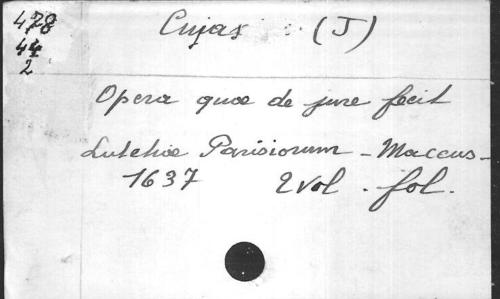 478
44
2
Cujas (J)
Opera quae de jure fecit
Lutetiae Parisiorum - Maceus -
1637 2 vol. fol.